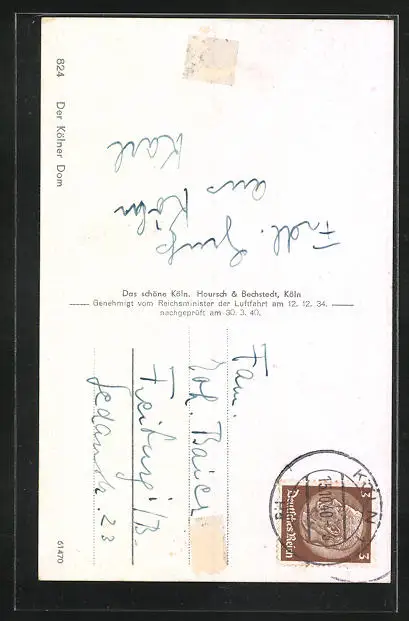 824 Der Kölner Dom
Frdl. Gruß
aus Köln
Karl
Das schöne Köln. Hoursch & Bechstedt, Köln
Genehmigt vom Reichsminister der Luftfahrt am 12. 12. 34.
nachgeprüft am 30. 3. 40.
Fam.
Joh. Baier
Freiburg i/B
Sedanstr. 23
61470
KÖLN
15.10.40
Deutsches Reich
3 3